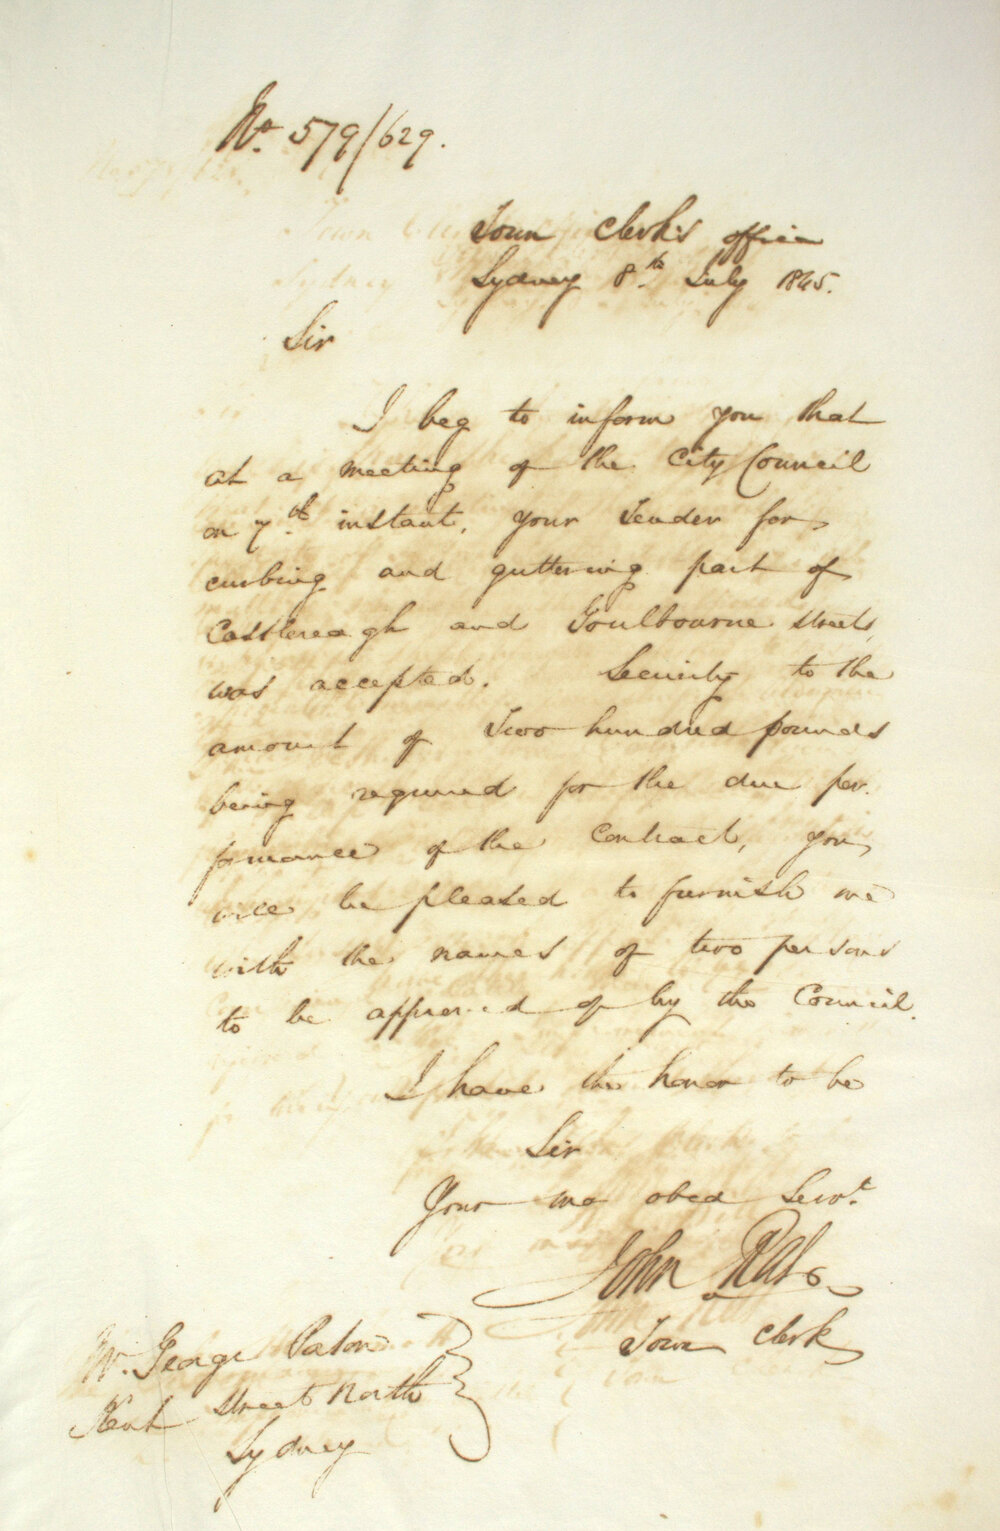 No. 579/629.
Town Clerk's office
Sydney 8th July 1845.
Sir
I beg to inform you that
at a meeting of the City Council
on 7th instant, your Tender for
curbing and guttering part of
Castlereagh and Goulbourne streets,
was accepted. Security to the
amount of Two hundred pounds
being required for the due per-
formance of the Contract, you
will be pleased to furnish me
with the names of two persons
to be approved of by the Council.
I have the honor to be
Sir
Your mo obed Servt.
John Rae
Town Clerk
Mr. George Paton
Kent Street North
Sydney